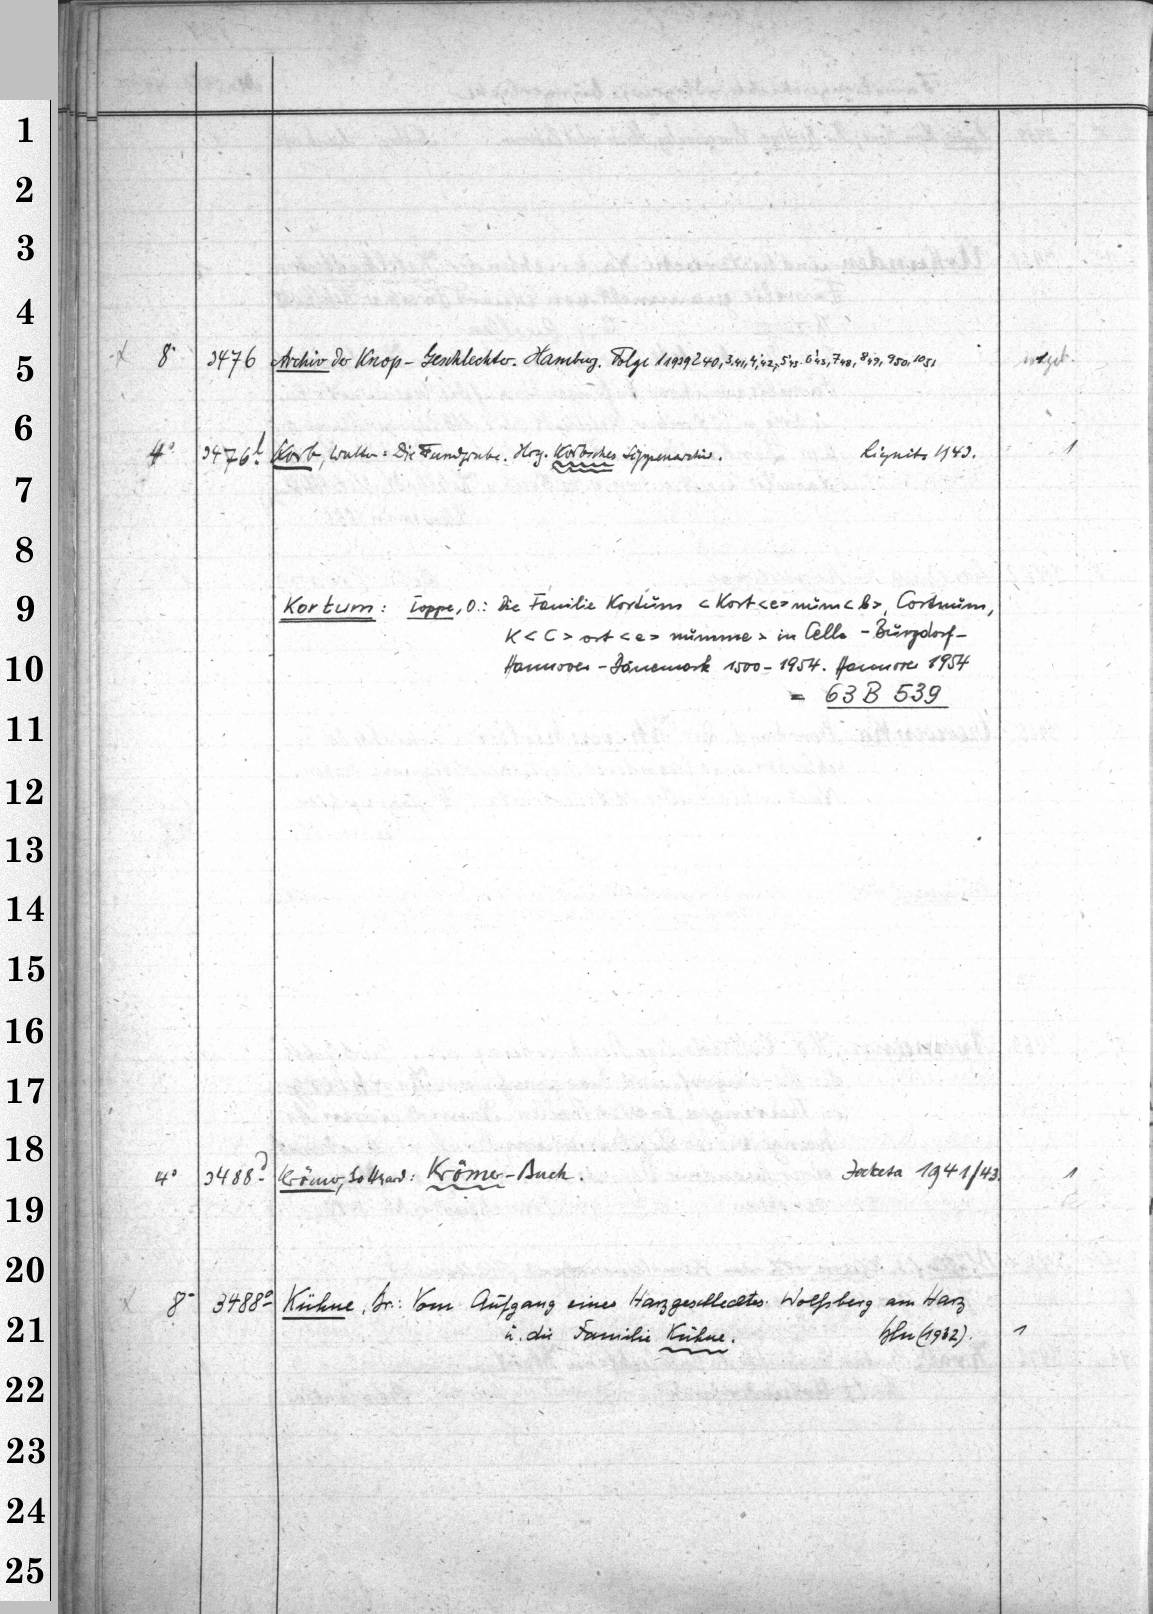 1
2
3
4
5
6
7
8
9
10
11
12
13
14
15
16
17
18
19
20
21
22
23
24
25
8° 3476 Archiv der Knop-Geschlechter. Hamburg. Folge 1 1939 2 40, 3.41, 4.42, 5.43. 6.45, 7 48, 8 49, 9 50, 10 51
4° 3476 b Korb, Walter: Die Fundgrube. Hrg. Korbsches Sippenarchiv. Liegnitz 1943. 1
Kortum: Toppe, O.: Die Familie Kortüm <Kort<e>nüm<b>, Cortnüm,
K<C>ort<e>nümme> in Celle - Bürgdorf-
Hannover - Dänemark 1500-1954. Hannover 1954
= 63 B 539
4° 3488 d Krömer, Krömer-Buch. 1941/43. 1
8° 3488 e Kühne, Dr.: Vom Aufgang eines Harzgeschlechtes. Wolfsberg am Harz
ü. die Familie Kühne. bln (1932). 1